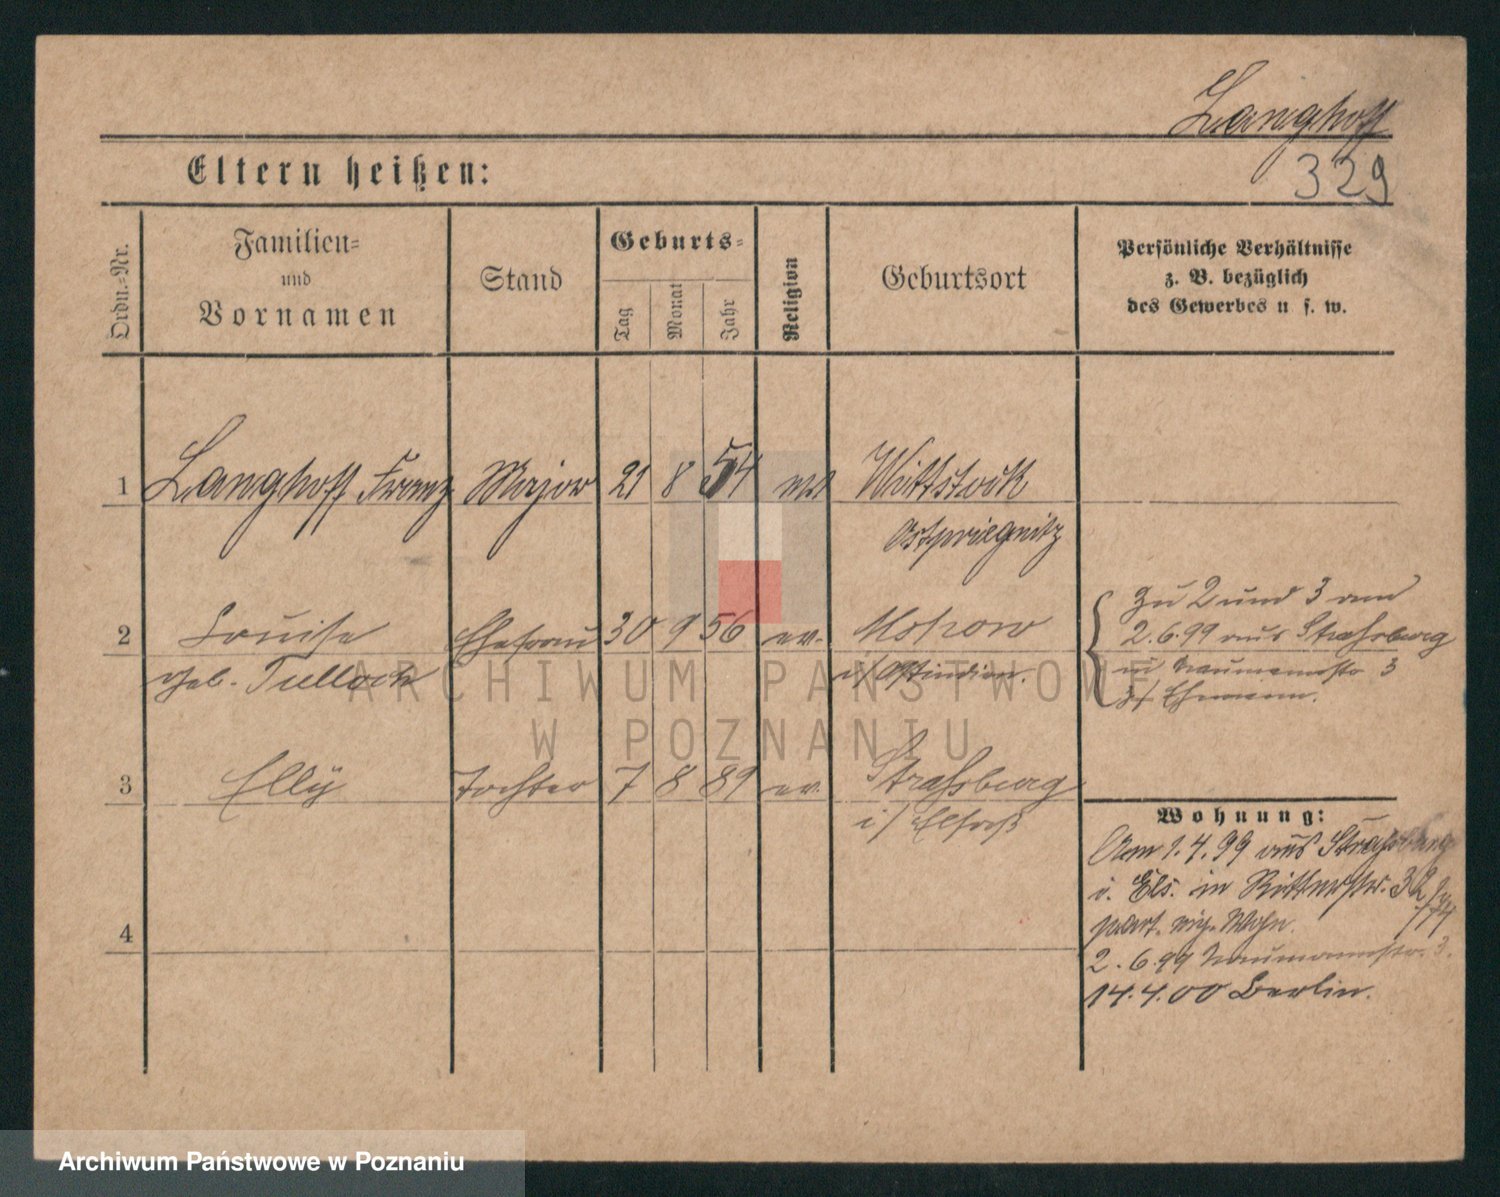 Langhoff
329
Eltern heißen:
Ordn.=Nr.
Familien=
und
Vornamen
Stand
Geburts=
Tag
Monat
Jahr
Religion
Geburtsort
Persönliche Verhältnisse
z. B. bezüglich
des Gewerbes u s. w.
1 Langhoff Franz Major 21 8 54 ev Wittstock
Ostpriegnitz
2 Louise Ehefrau 30 9 56 ev.
geb. Tullock i/ Ostindien.
Zu 2 und 3 am
2.6.99 aus Strassburg
in Naumannstr 3
z/ Ehemann.
3 Elly Tochter 7 8 89 ev. Strassburg
i/ Elsaß
4
Wohnung:
Am 1.4.99 aus Strassburg
i. Els. in Ritterstr. 32
part. eig. Wohn.
2.6.99 Naumannstr. 3.
14.4.00 Berlin.
ARCHIWUM PAŃSTWOWE
W POZNANIU
Archiwum Państwowe w Poznaniu